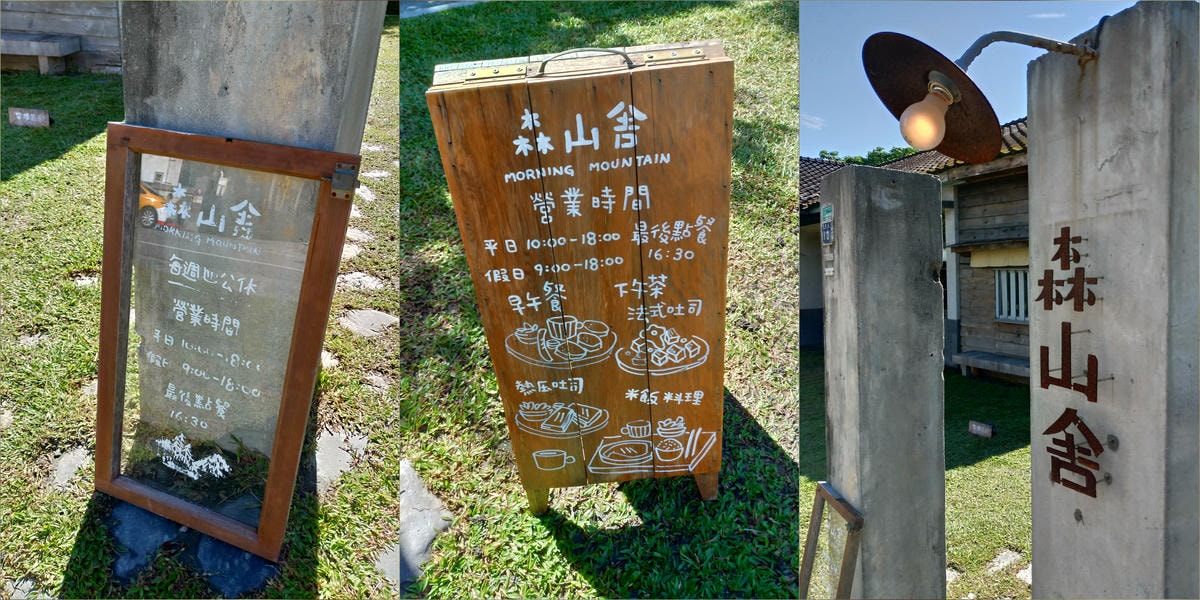 森山舍
MORNING MOUNTAIN
每週四公休
營業時間
平日 10:00-18:00
假日 9:00-18:00
最後點餐
16:30
森山舍
MORNING MOUNTAIN
營業時間
平日 10:00-18:00 最後點餐
假日 9:00-18:00 16:30
早午餐 下午茶
法式吐司
熱压吐司 米飯料理
森山舍